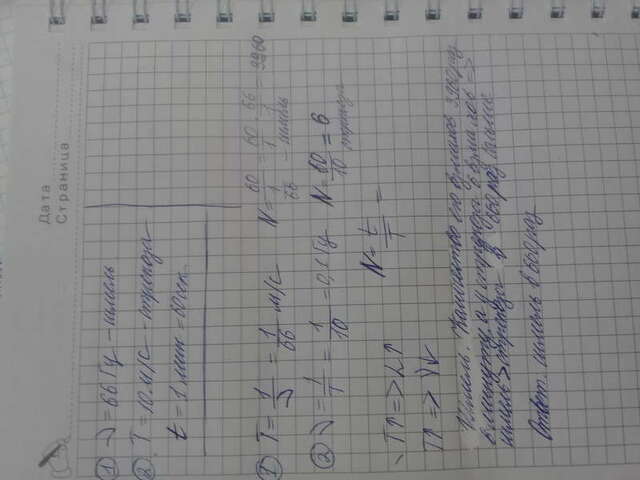 Дата
Страница
① ν = 66 Гц - шмель
② T = 10 м/с - стрекоза
t = 1 мин = 60 сек
① T = 1/ν = 1/66 м/с N = 60/(1/66) = 60/1 · 66/1 = 3960 - шмель
② ν = 1/T = 1/10 = 0,1 Гц N = 60/10 = 6 стрекоза
N = t/T =
T↑ => L↑
T↑ => ν↓
Шмель. Количество его взмахов 3960 раз
в минуту, а у стрекозы 6 взмахов =>
шмель > стрекоза в 660 раз больше
Ответ. шмель в 660 раз